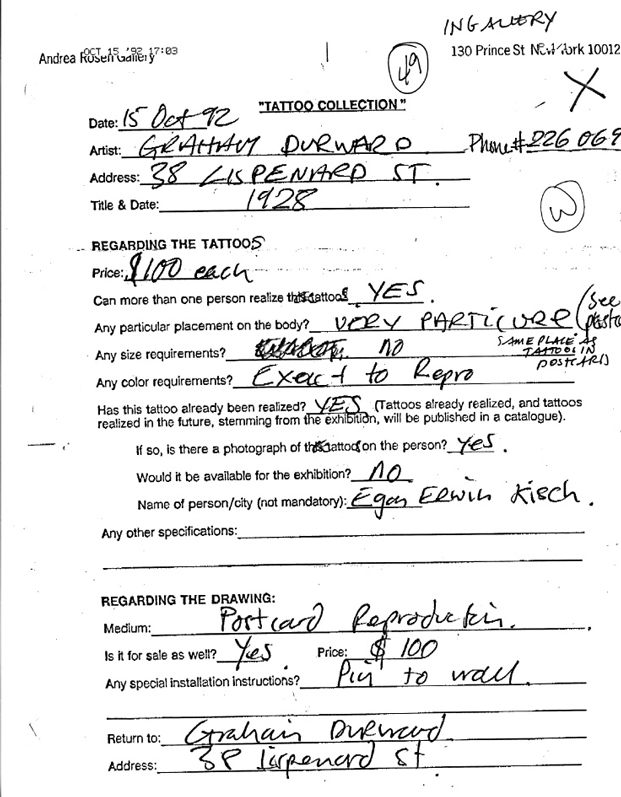 IN GALLERY
OCT 15 '92 17:03
Andrea Rosen Gallery
130 Prince St New York 10012
49
X
"TATTOO COLLECTION"
Date: 15 Oct 92
Artist: GRAHAM DURWARD Phone# 226 069
Address: 38 LISPENARD ST.
Title & Date: 1928
W
REGARDING THE TATTOOS
Price: $100 each
Can more than one person realize tattoos YES.
Any particular placement on the body? VERY PARTICURE (See
SAME PLACE AS TATTOOS IN POSTCARD)
Any size requirements? NO
Any color requirements? Exact to Repro
Has this tattoo already been realized? YES (Tattoos already realized, and tattoos
realized in the future, stemming from the exhibition, will be published in a catalogue).
If so, is there a photograph of tattoo on the person? Yes.
Would it be available for the exhibition? NO
Name of person/city (not mandatory): Egon Erwin Kisch.
Any other specifications:
REGARDING THE DRAWING:
Medium: Postcard Reproduction.
Is it for sale as well? Yes. Price: $100
Any special installation instructions? Pin to wall.
Return to: Graham Durward
Address: 38 Lispenard St